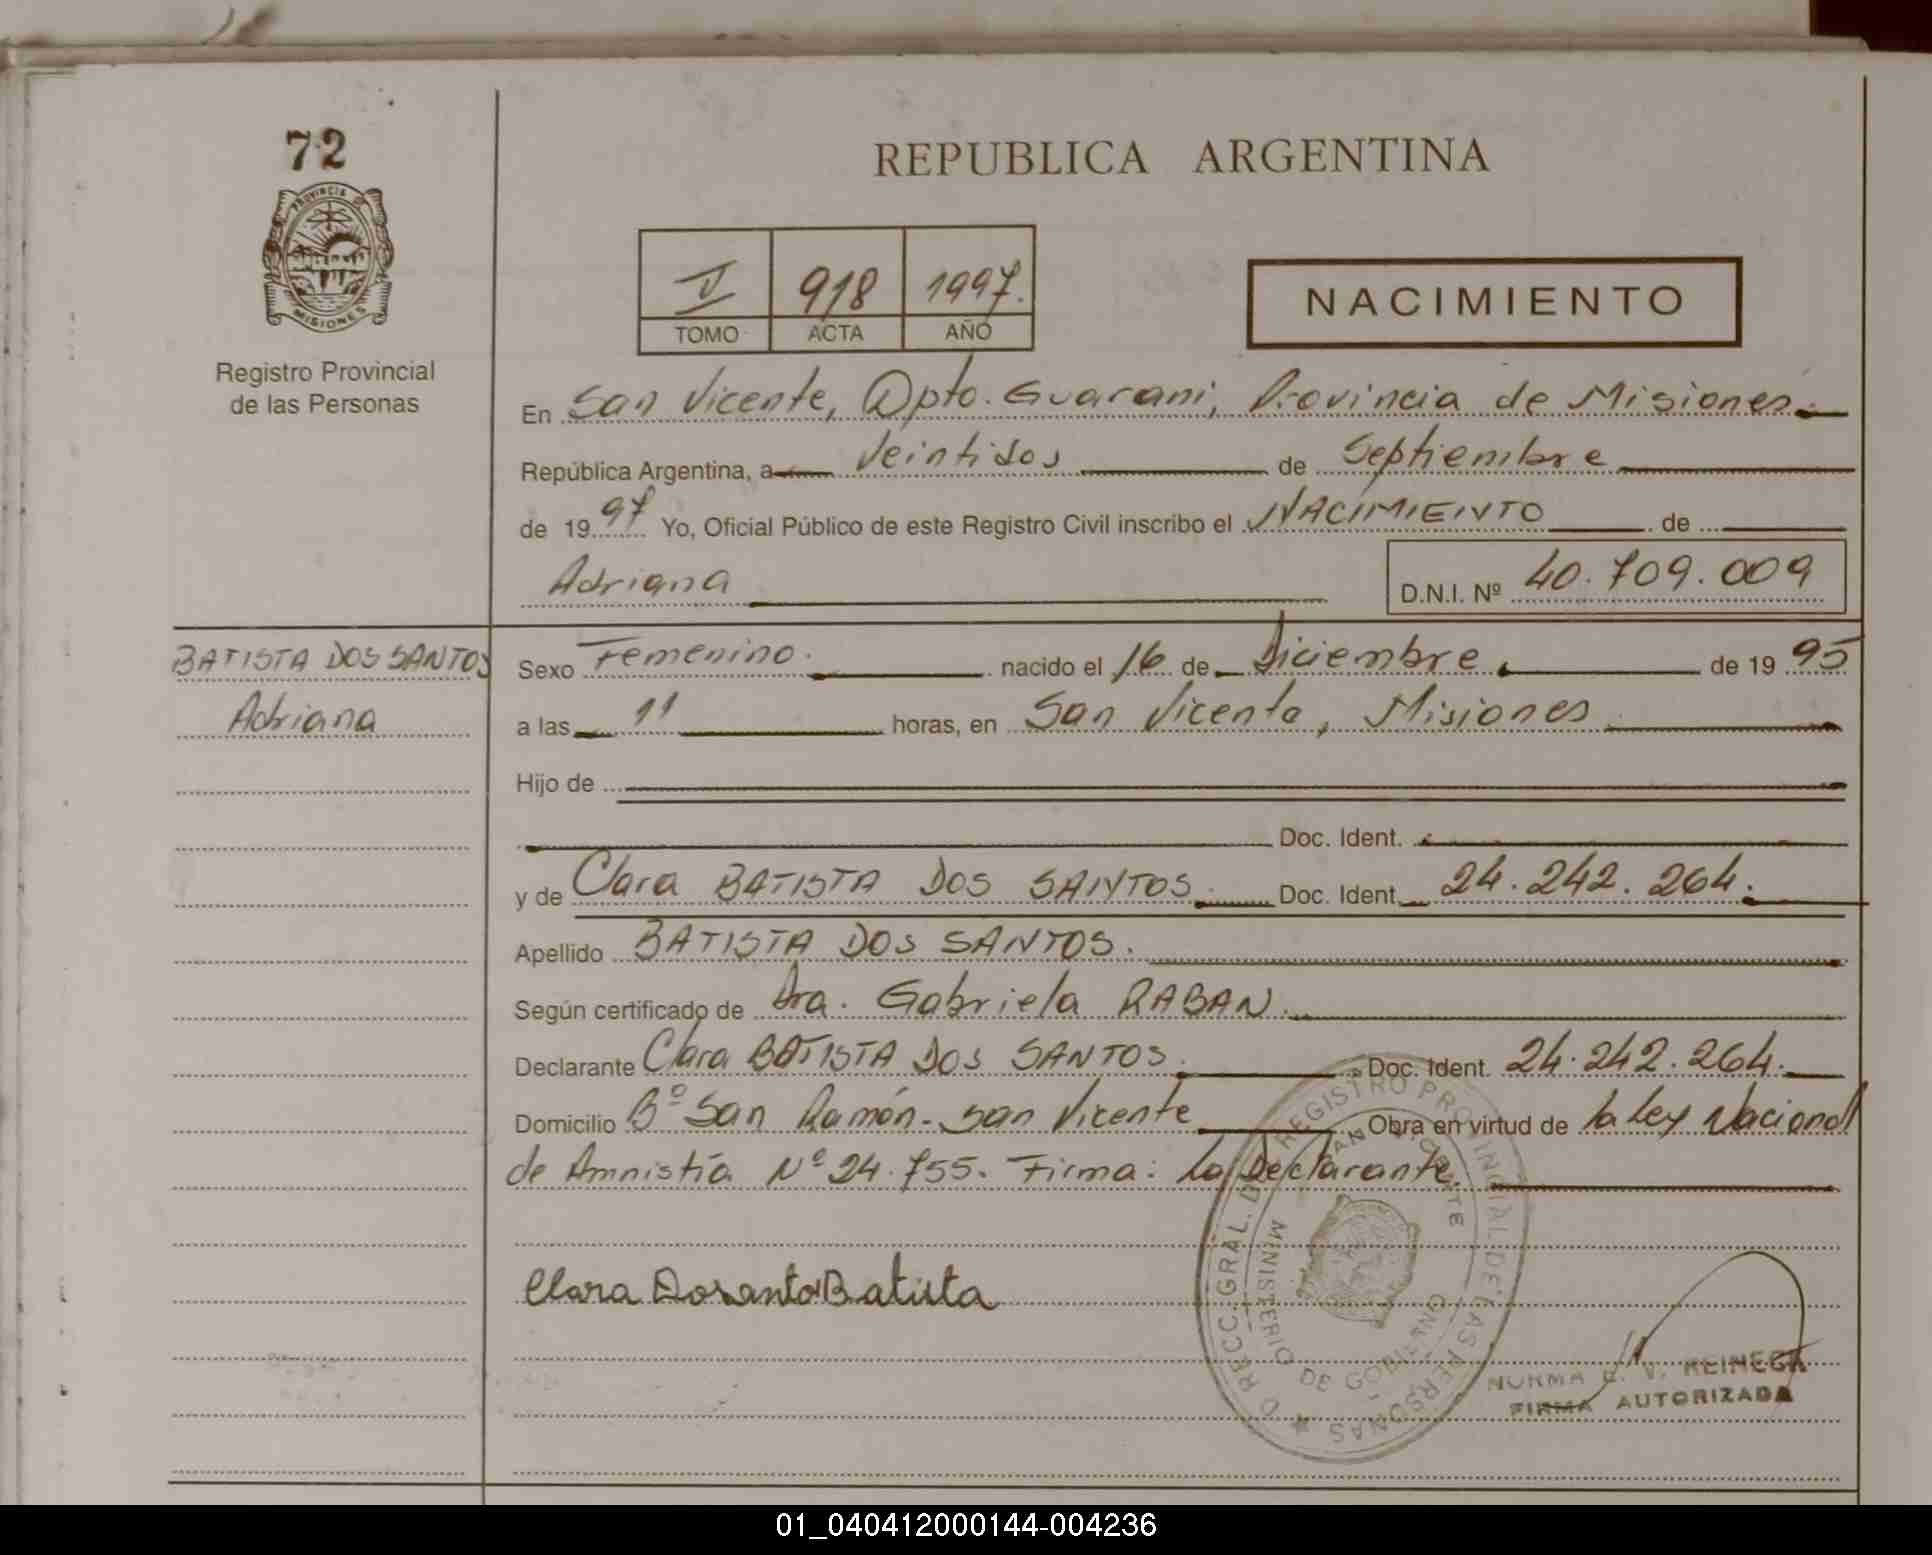 72
PROVINCIA DE
MISIONES
Registro Provincial
de las Personas
REPUBLICA ARGENTINA
V 918 1997.
TOMO ACTA AÑO
NACIMIENTO
En San Vicente, Dpto. Guarani, Provincia de Misiones.
República Argentina, a Veintidos de Septiembre
de 19 97 Yo, Oficial Público de este Registro Civil inscribo el NACIMIENTO de
Adriana D.N.I. Nº 40.709.009
BATISTA DOS SANTOS
Adriana
Sexo Femenino. nacido el 16 de Diciembre. de 19 95
a las 11 horas, en San Vicente, Misiones
Hijo de
Doc. Ident.
y de Clara BATISTA DOS SANTOS. Doc. Ident. 24.242.264.
Apellido BATISTA DOS SANTOS.
Según certificado de Dra. Gabriela RABAN.
Declarante Clara BATISTA DOS SANTOS. Doc. Ident. 24.242.264.
Domicilio Bº San Ramón - San Vicente Obra en virtud de la Ley Nacional
de Amnistía Nº 24.755. Firma: La Declarante.
Clara Dosanto Batista
DIRECC. GRAL. DEL REGISTRO PROVINCIAL DE LAS PERSONAS
SAN VICENTE
MINISTERIO DE GOBIERNO
NORMA V. REINECK
FIRMA AUTORIZADA
01_040412000144-004236